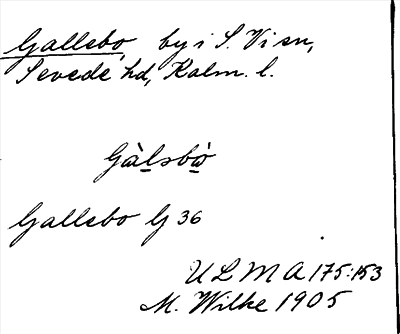 Gallebo, by i S. Vi sn,
Sevede hd, Kalm. l.
Gàlsbò
Gallebo G 36
ULMA 175:153
M. Wilke 1905